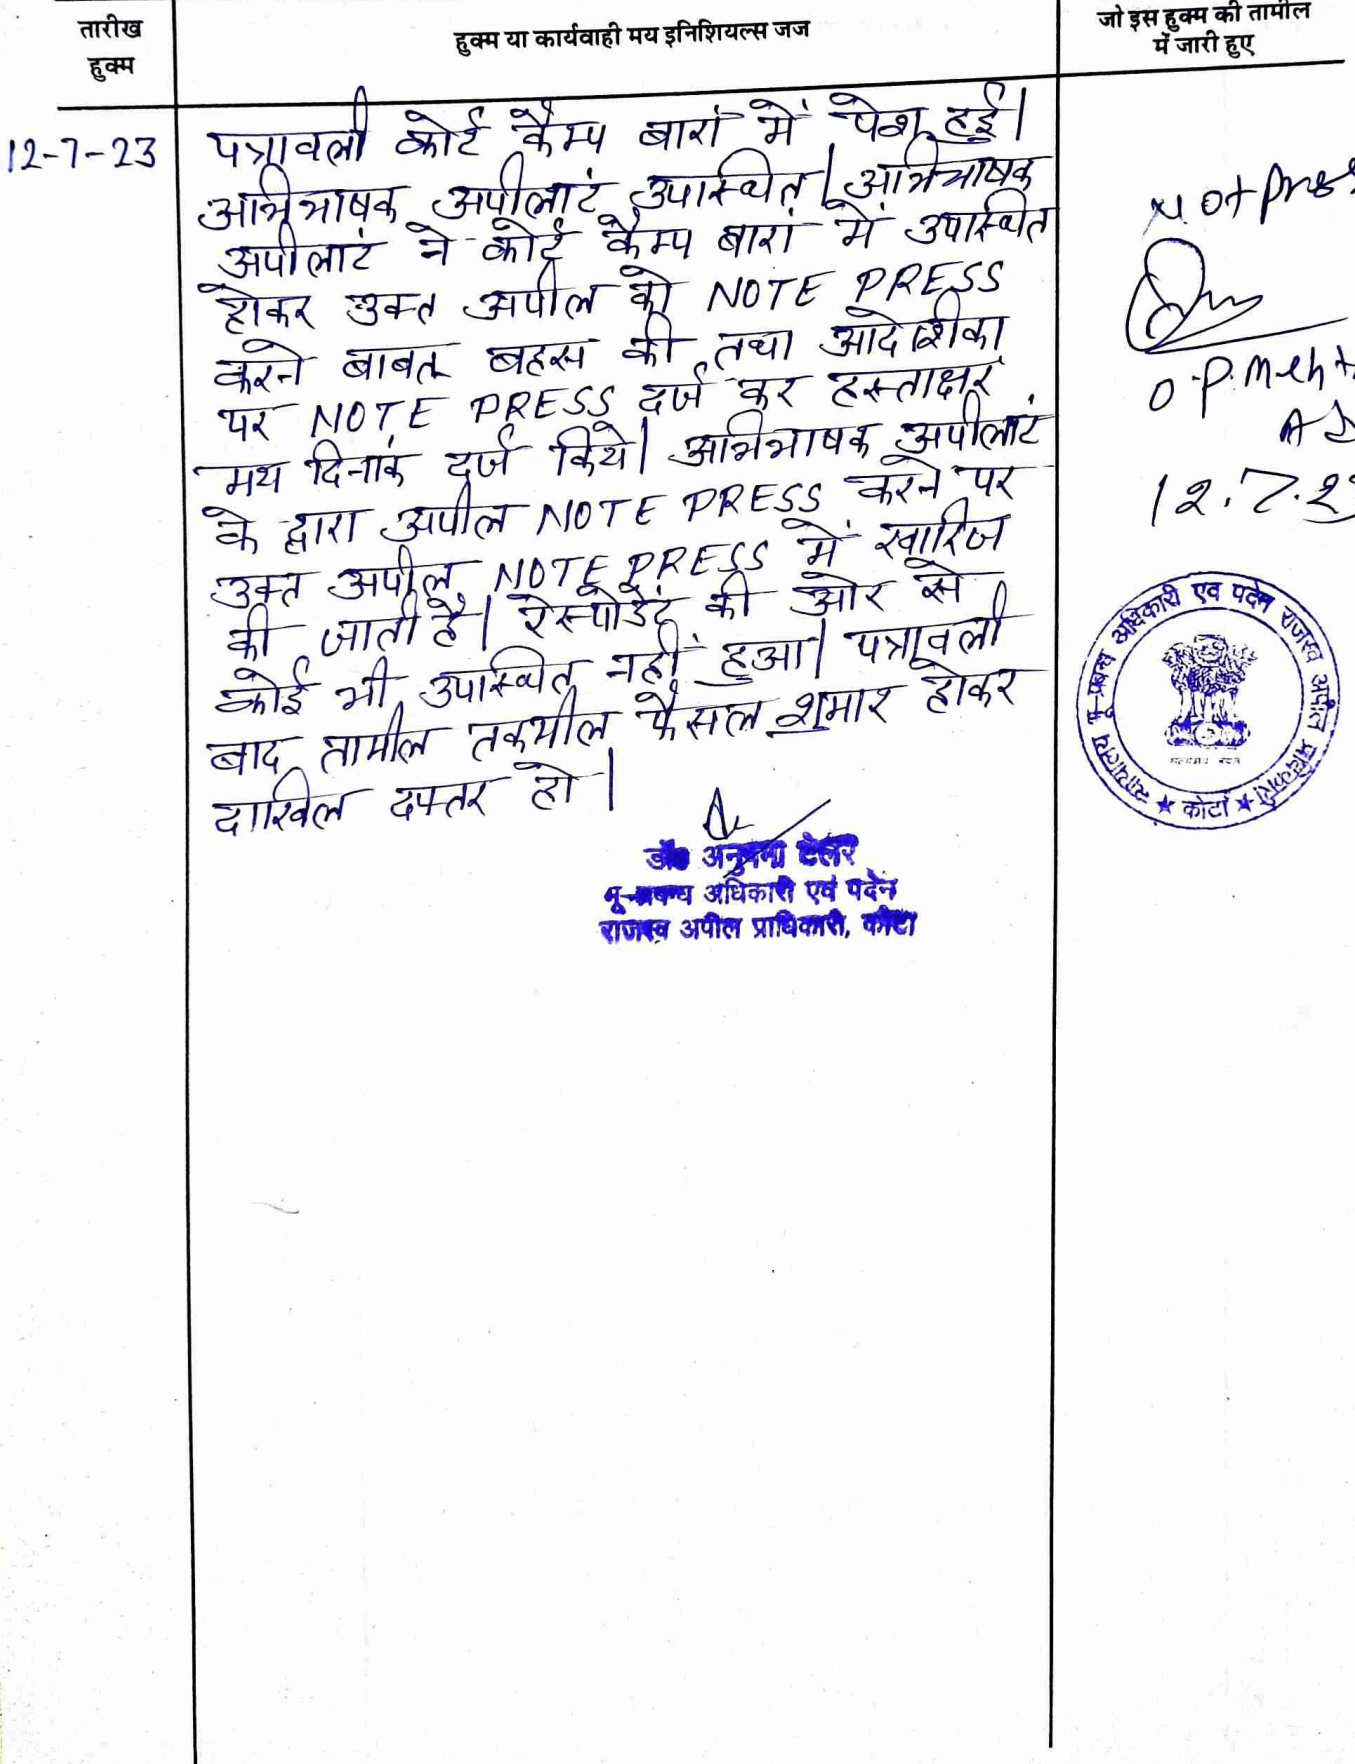 तारीख
हुक्म
हुक्म या कार्यवाही मय इनिशियल्स जज
जो इस हुक्म की तामील
में जारी हुए
12-7-23
पत्रावली कोर्ट कैम्प बारां में पेश हुई।
अभिभाषक अपीलांट उपस्थित। अभिभाषक
अपीलांट ने कोर्ट कैम्प बारां में उपस्थित
होकर उक्त अपील को NOTE PRESS
करने बाबत बहस की तथा आदेशिका
पर NOTE PRESS दर्ज कर हस्ताक्षर
मय दिनांक दर्ज किये। अभिभाषक अपीलांट
के द्वारा अपील NOTE PRESS करने पर
उक्त अपील NOTE PRESS में खारिज
की जाती है। रेस्पोडेंट की ओर से
कोई भी उपस्थित नहीं हुआ। पत्रावली
बाद तामील तकमील फैसल शुमार होकर
दाखिल दफ्तर हो।
डॉ अनुपमा टेलर
भू-प्रबन्ध अधिकारी एवं पदेन
राजस्व अपील प्राधिकारी, कोटा
Not press
O.P. Meht
AD
12.7.23
न्यायालय भू-प्रबन्ध अधिकारी एवं पदेन राजस्व अपील प्राधिकारी
★ कोटा ★